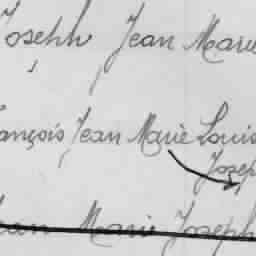 Joseph Jean Marie
ançois Jean Marie Louis
Josep
ean Marie Joseph